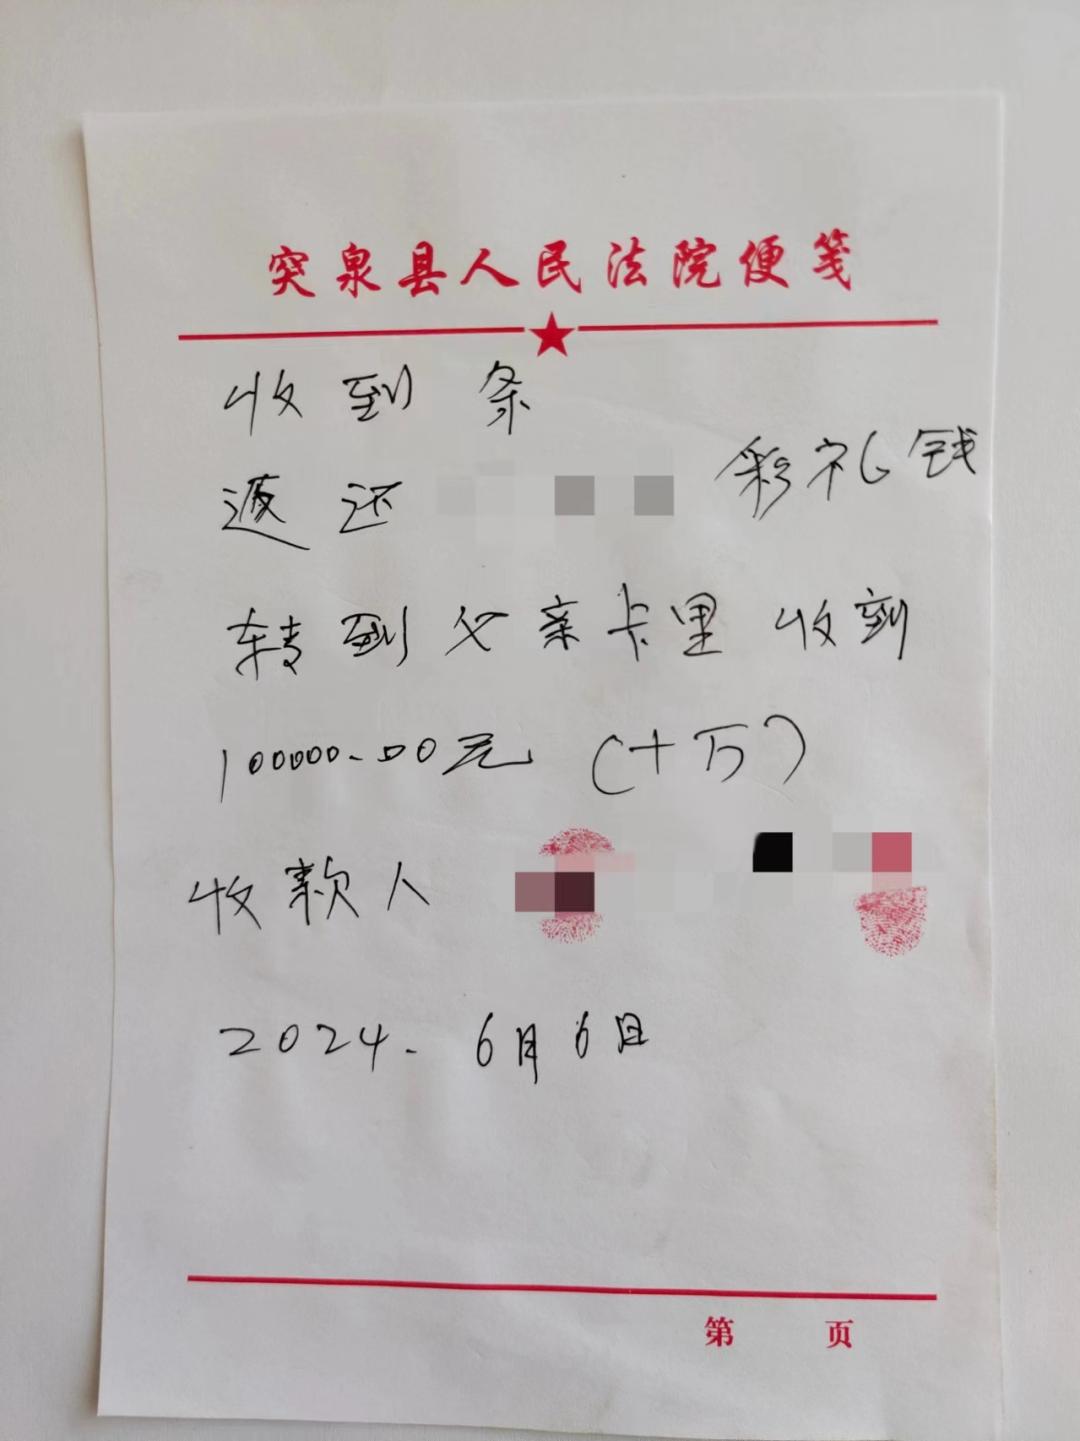 突泉县人民法院便笺
收到条
退还 彩礼钱
转到父亲卡里收到
100000.00元(十万)
收款人
2024.6月6日
第 页